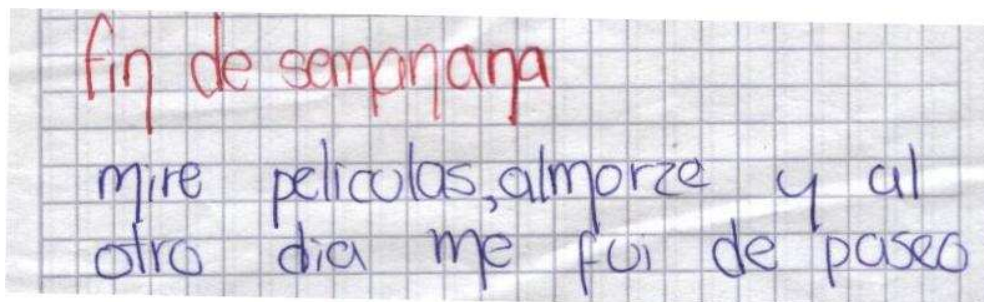 fin de semanana
mire peliculas, almorze y al
otro dia me fui de paseo